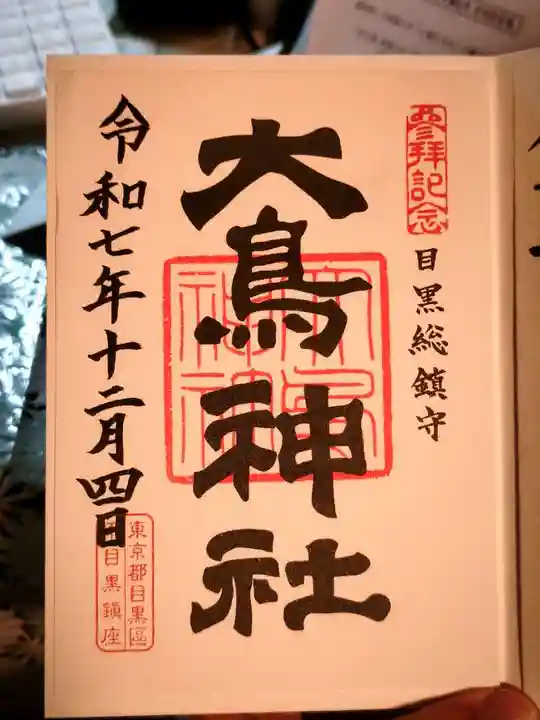 參拝記念
目黒総鎮守
大鳥神社
大鳥
神社
令和七年十二月四日
東京都目黒區
目黒鎮座